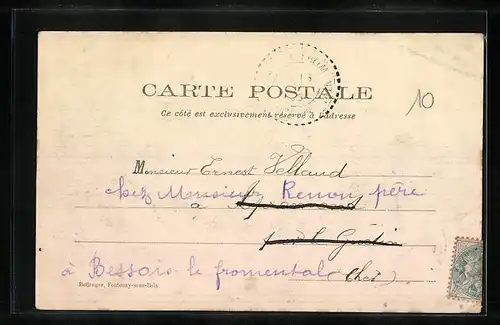 CARTE POSTALE
10
Ce côté est exclusivement réservé à l'adresse
Monsieur Ernest Vellaud
chez Monsieur Renon père
à
par le Guétin
à Bessais le fromental (Cher)
Bellenger, Fontenay-sous-Bois